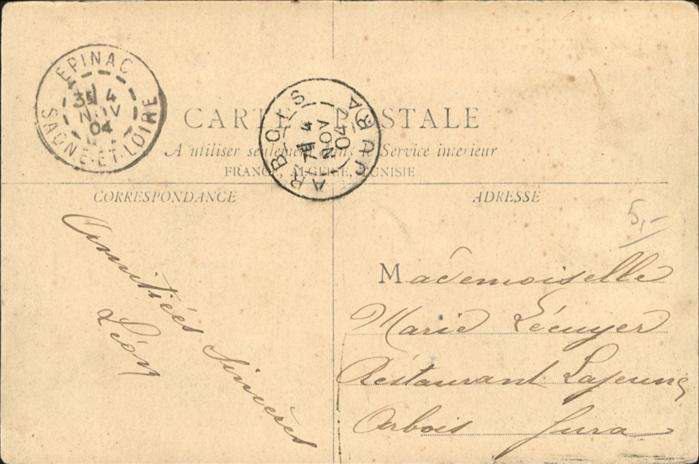 EPINAC
3E 4
NOV
04
SAONE-ET-LOIRE
ARBOIS
4
NOV
04
JURA
CARTE POSTALE
A utiliser seulement dans le Service intérieur
FRANCE, ALGERIE, TUNISIE
CORRESPONDANCE
ADRESSE
5,-
Amitiées Sincères
Léon
Mademoiselle
Marie Lécuyer
Restaurant Lajeune
Arbois Jura